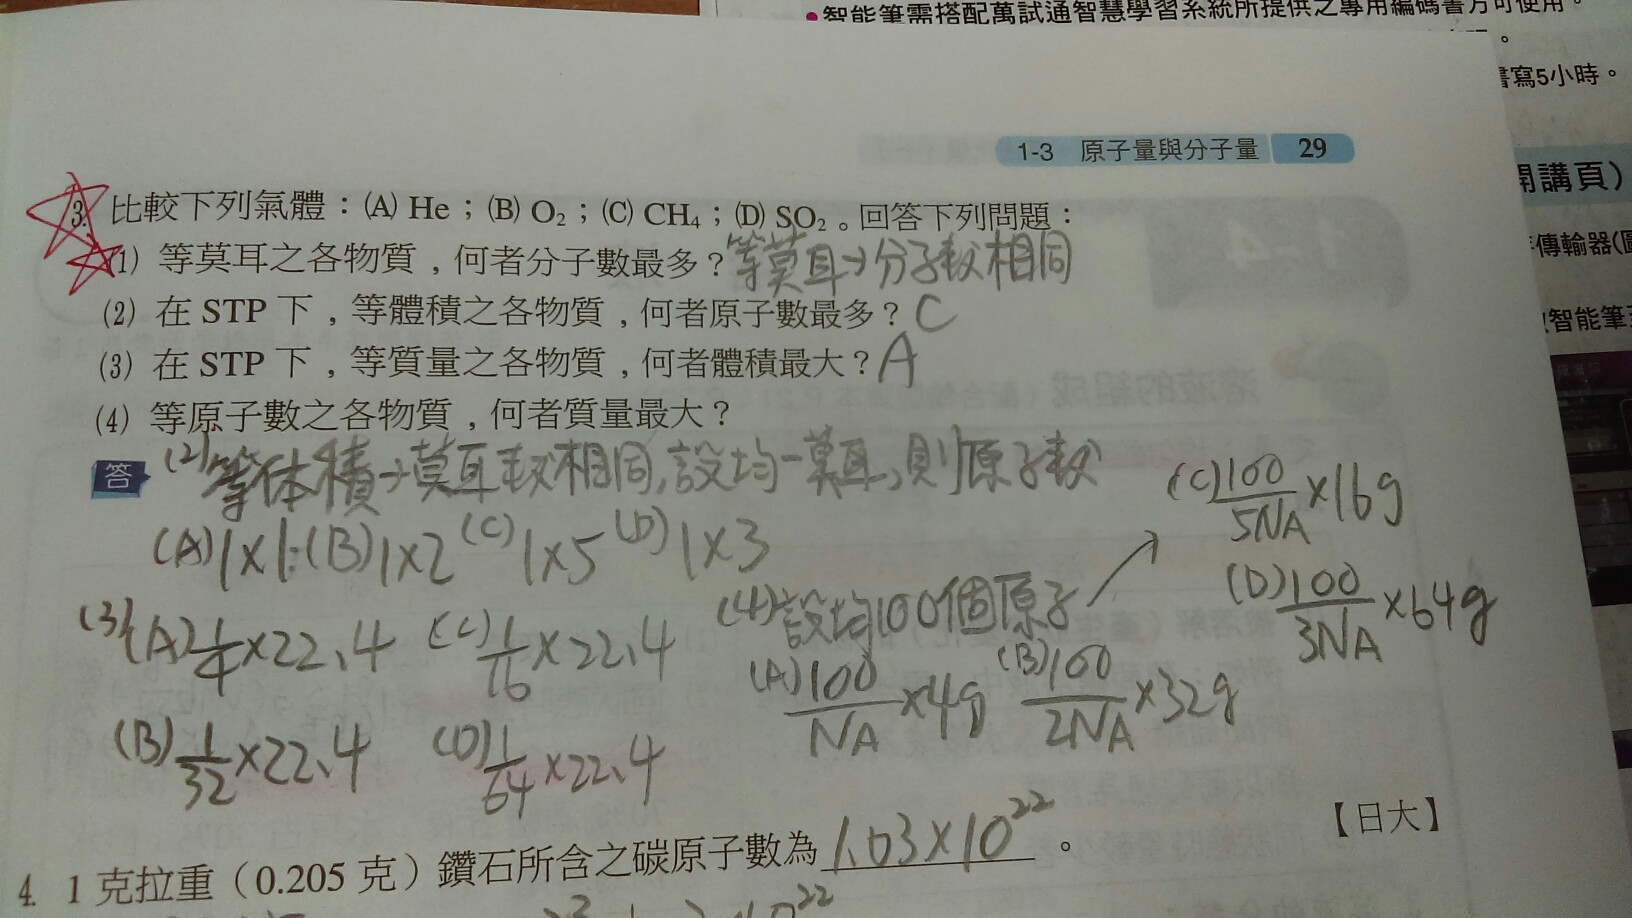 ●智能筆需搭配萬試通智慧學習系統所提供之專用編碼書方可使用。
書寫5小時。
1-3 原子量與分子量 29
開講頁）
傳輸器
智能筆
3. 比較下列氣體：(A) He；(B) O₂；(C) CH₄；(D) SO₂。回答下列問題：
(1) 等莫耳之各物質，何者分子數最多？等莫耳→分子数相同
(2) 在 STP 下，等體積之各物質，何者原子數最多？C
(3) 在 STP 下，等質量之各物質，何者體積最大？A
(4) 等原子數之各物質，何者質量最大？
答 (2) 等体積→莫耳数相同,設均一莫耳,則原子数
(A) 1×1 (B) 1×2 (C) 1×5 (D) 1×3
(3) (A) 1/4 ×22.4 (C) 1/16 ×22.4
(B) 1/32 ×22.4 (D) 1/64 ×22.4
(4) 設均100個原子→
(A) 100/NA ×4g (B) 100/2NA ×32g
(C) 100/5NA ×16g
(D) 100/3NA ×64g
【日大】
4. 1 克拉重（0.205 克）鑽石所含之碳原子數為 1.03×10²² 。